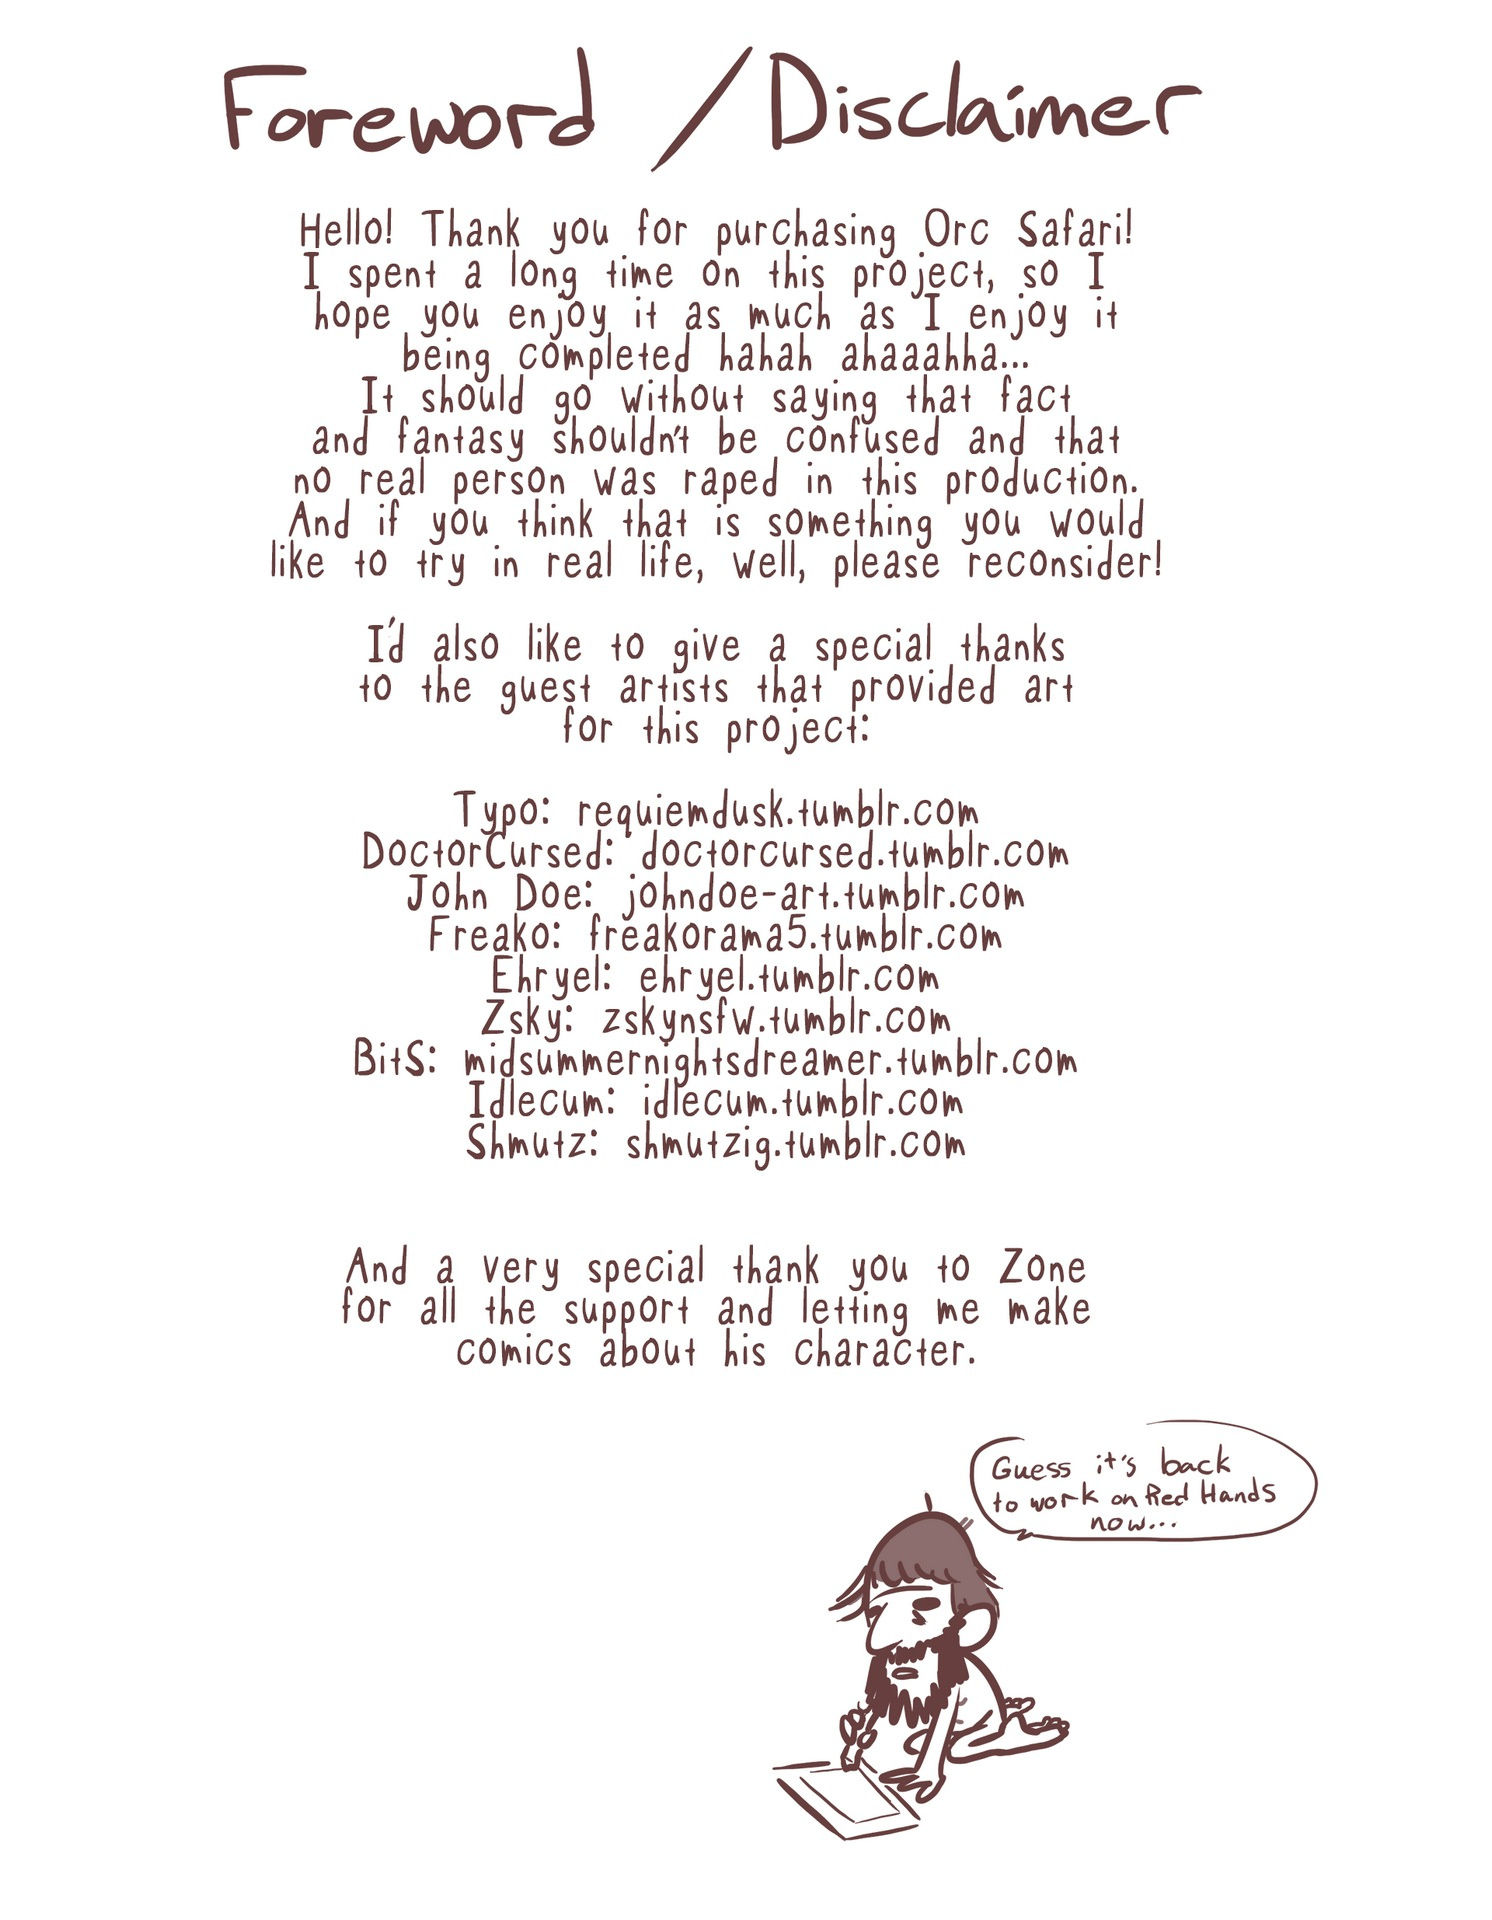 Foreword / Disclaimer
Hello! Thank you for purchasing Orc Safari!
I spent a long time on this project, so I
hope you enjoy it as much as I enjoy it
being completed hahah ahaaahha...
It should go without saying that fact
and fantasy shouldn't be confused and that
no real person was raped in this production.
And if you think that is something you would
like to try in real life, well, please reconsider!
I'd also like to give a special thanks
to the guest artists that provided art
for this project:
Typo: requiemdusk.tumblr.com
DoctorCursed: doctorcursed.tumblr.com
John Doe: johndoe-art.tumblr.com
Freako: freakorama5.tumblr.com
Ehryel: ehryel.tumblr.com
Zsky: zskynsfw.tumblr.com
BitS: midsummernightsdreamer.tumblr.com
Idlecum: idlecum.tumblr.com
Shmutz: shmutzig.tumblr.com
And a very special thank you to Zone
for all the support and letting me make
comics about his character.
Guess it's back
to work on Red Hands
now...